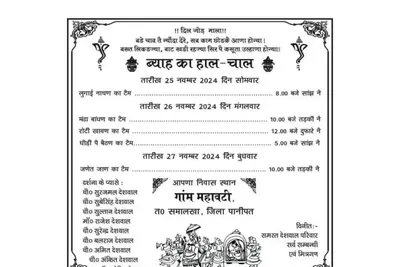 !! दिल जोड़ माला!!
बड़े चाव तै न्यौंदा देरे, सब काम छोडकै आणा होग्या।
बखत लिकडज्या, बाट खड़ी रहज्या सिर पै कसूता उल्हाणा होग्या।।
ब्याह का हाल-चाल
तारीख 25 नवम्बर 2024 दिन सोमवार
लुगाई नाचण का टैम 8.00 बजे सांझ नै
तारीख 26 नवम्बर 2024 दिन मंगलवार
मंढा बांधण का टैम 10.00 बजे तड़की नै
रोटी खावण का टैम 12.00 बजे दुफारे नै
घोड़ी पै बैठण का टैम 5.00 बजे सांझ नै
तारीख 27 नवम्बर 2024 दिन बुधवार
जणेत जाण का टैम 10.00 बजे तड़की नै
दर्शना के प्यासे :
चौ० सुरजमल देशवाल
चौ० सुबेसिंह देशवाल
चौ० सुल्तान देशवाल
मा० राजेश देशवाल
चौ० सुरेन्द्र देशवाल
चौ० बलराज देशवाल
चौ० अमित देशवाल
चौ० अंकित देशवाल
आपणा निवास स्थान
गांम महावटी,
त० समालखा, जिला पानीपत
विनीत:-
समस्त देशवाल परिवार
सर्व सम्बन्धी
एवं मित्रगण